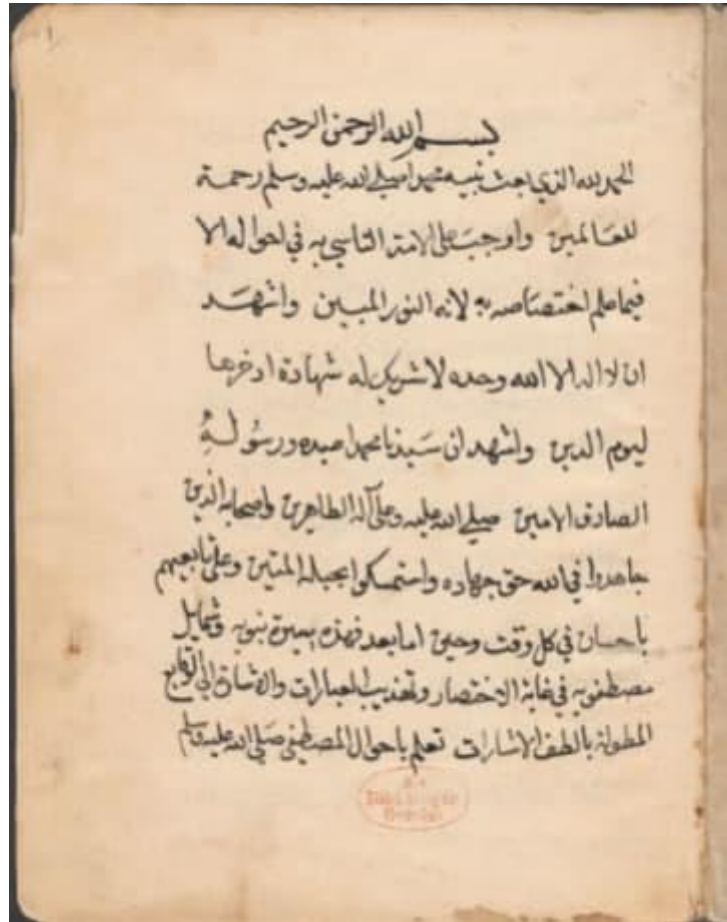 بسم الله الرحمن الرحيم
الحمد لله الذي بعث نبيه محمدا صلى الله عليه وسلم رحمة
للعالمين واوجب على الامة التاسي به في احواله الا
فيما علم اختصاصه به لانه النور المبين واشهد
ان لا اله الا الله وحده لا شريك له شهادة ادخرها
ليوم الدين واشهد ان سيدنا محمدا عبده ورسوله
الصادق الامين صلى الله عليه وعلى آله الطاهرين واصحابه الذين
جاهدوا في الله حق جهاده واستمسكوا بحبله المتين وعلى تابعيهم
باحسان في كل وقت وحين اما بعد فهذه سيرة نبويه وشمايل
مصطفويه في غاية الاختصار وتهذيب العبارات والاشارة الي الوقايع
المطولة بالطف الاشارات تعلم باحوال المصطفى صلى الله عليه وسلم